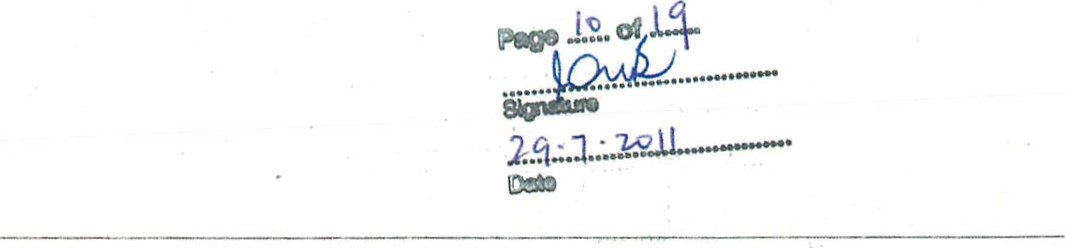 Page 10 of 19
Signature
29.7.2011
Date